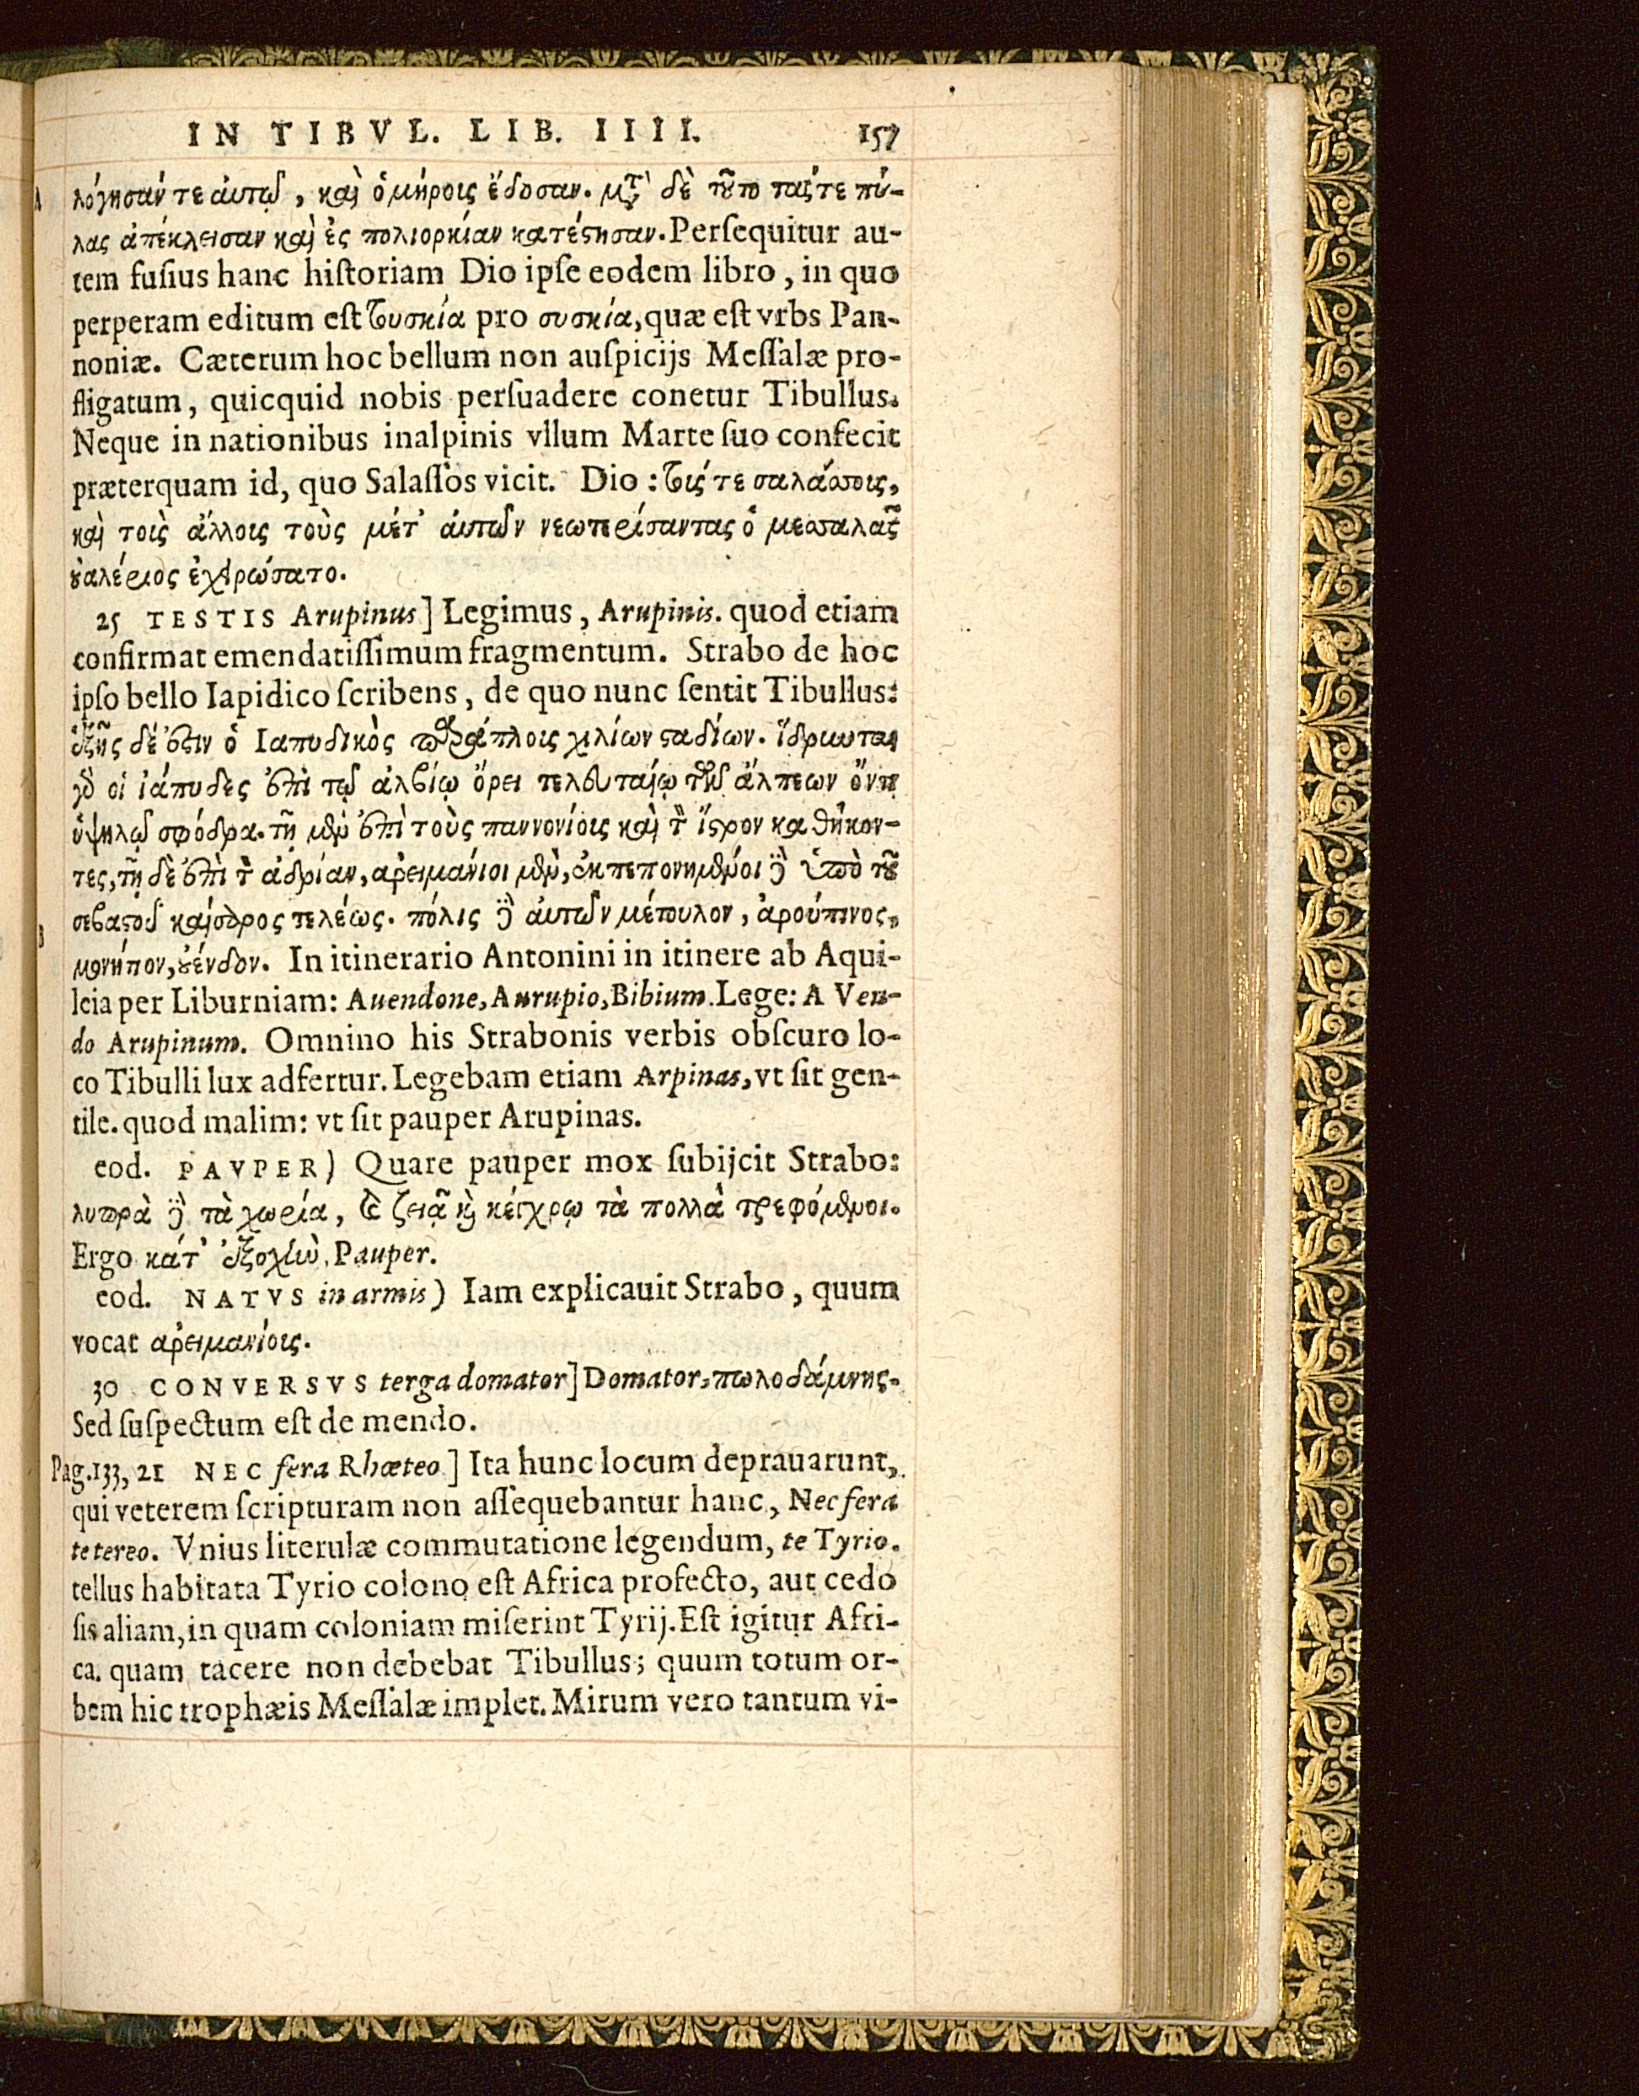 IN TIBVL. LIB. IIII. 157
A λόγησάν τε ἀυτῷ, καὶ ὁμήροις ἔδοσαν. μετὰ δὲ τοῦτο τάς τε πύ-
λας ἀπέκλεισαν καὶ ἐς πολιορκίαν κατέστησαν. Perſequitur au-
tem fuſius hanc hiſtoriam Dio ipſe eodem libro, in quo
perperam editum eſt τυσκία pro συσκία, quæ eſt vrbs Pan-
noniæ. Cæterum hoc bellum non auſpicijs Meſſalæ pro-
fligatum, quicquid nobis perſuadere conetur Tibullus.
Neque in nationibus inalpinis vllum Marte ſuo confecit
præterquam id, quo Salaſſos vicit. Dio: τούς τε σαλάσσους,
καὶ τοὺς ἄλλους τοὺς μέτ' ἀυτῶν νεωτερίσαντας ὁ μεσσαλᾶς
οὐαλέριος ἐχειρώσατο.
25 TESTIS Arupinus] Legimus, Arupinis. quod etiam
confirmat emendatiſſimum fragmentum. Strabo de hoc
ipſo bello Iapidico ſcribens, de quo nunc ſentit Tibullus:
ἑξῆς δέ ἐστιν ὁ Ιαπυδικὸς παράπλους χιλίων σταδίων. ἵδρυνται
γὸ οἱ ἰάπυδες ἐπὶ τῷ ἀλβίῳ ὄρει τελευταίῳ τῶν ἄλπεων ὄντι
ὑψηλῷ σφόδρα. τῇ μὲν ἐπὶ τοὺς παννονίους καὶ τὸν ἴστρον καθήκον-
τες, τῇ δὲ ἐπὶ τὸν ἀδρίαν, ἀρειμάνιοι μὲν, ἐκπεπονημένοι δὲ ὑπὸ τοῦ
σεβαστοῦ καίσαρος τελέως. πόλις δὲ ἀυτῶν μέτουλον, ἀρούπινος,
μονήτιον, οὐένδον. In itinerario Antonini in itinere ab Aqui-
B leia per Liburniam: Auendone, Aurupio, Bibium. Lege: A Ven-
do Arupinum. Omnino his Strabonis verbis obſcuro lo-
co Tibulli lux adfertur. Legebam etiam Arpinas, vt ſit gen-
tile. quod malim: vt ſit pauper Arupinas.
eod. PAVPER) Quare pauper mox ſubijcit Strabo:
λυπρὰ δὲ τὰ χωρία, καὶ ζειᾷ καὶ κέγχρῳ τὰ πολλὰ τρεφόμενοι.
Ergo κάτ' ἐξοχὴν, Pauper.
eod. NATVS in armis) Iam explicauit Strabo, quum
vocat ἀρειμανίους.
30 CONVERSVS terga domator] Domator, πωλοδάμνης.
Sed ſuſpectum eſt de mendo.
Pag. 133, 21 NEC fera Rhœteo] Ita hunc locum deprauarunt,
qui veterem ſcripturam non aſſequebantur hanc, Nec fera
te tereo. Vnius literulæ commutatione legendum, te Tyrio.
tellus habitata Tyrio colono eſt Africa profecto, aut cedo
ſis aliam, in quam coloniam miſerint Tyrij. Eſt igitur Afri-
ca. quam tacere non debebat Tibullus; quum totum or-
bem hic trophæis Meſſalæ implet. Mirum vero tantum vi-